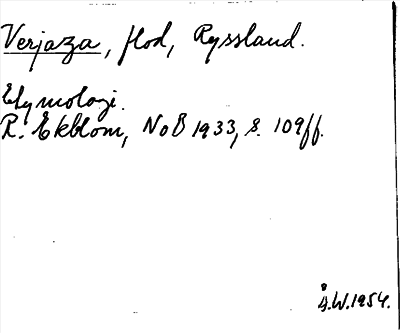 Verjaza, flod, Ryssland.
Etymologi.
R. Ekblom, NoB 1933, s. 109ff.
Å.W.1954.